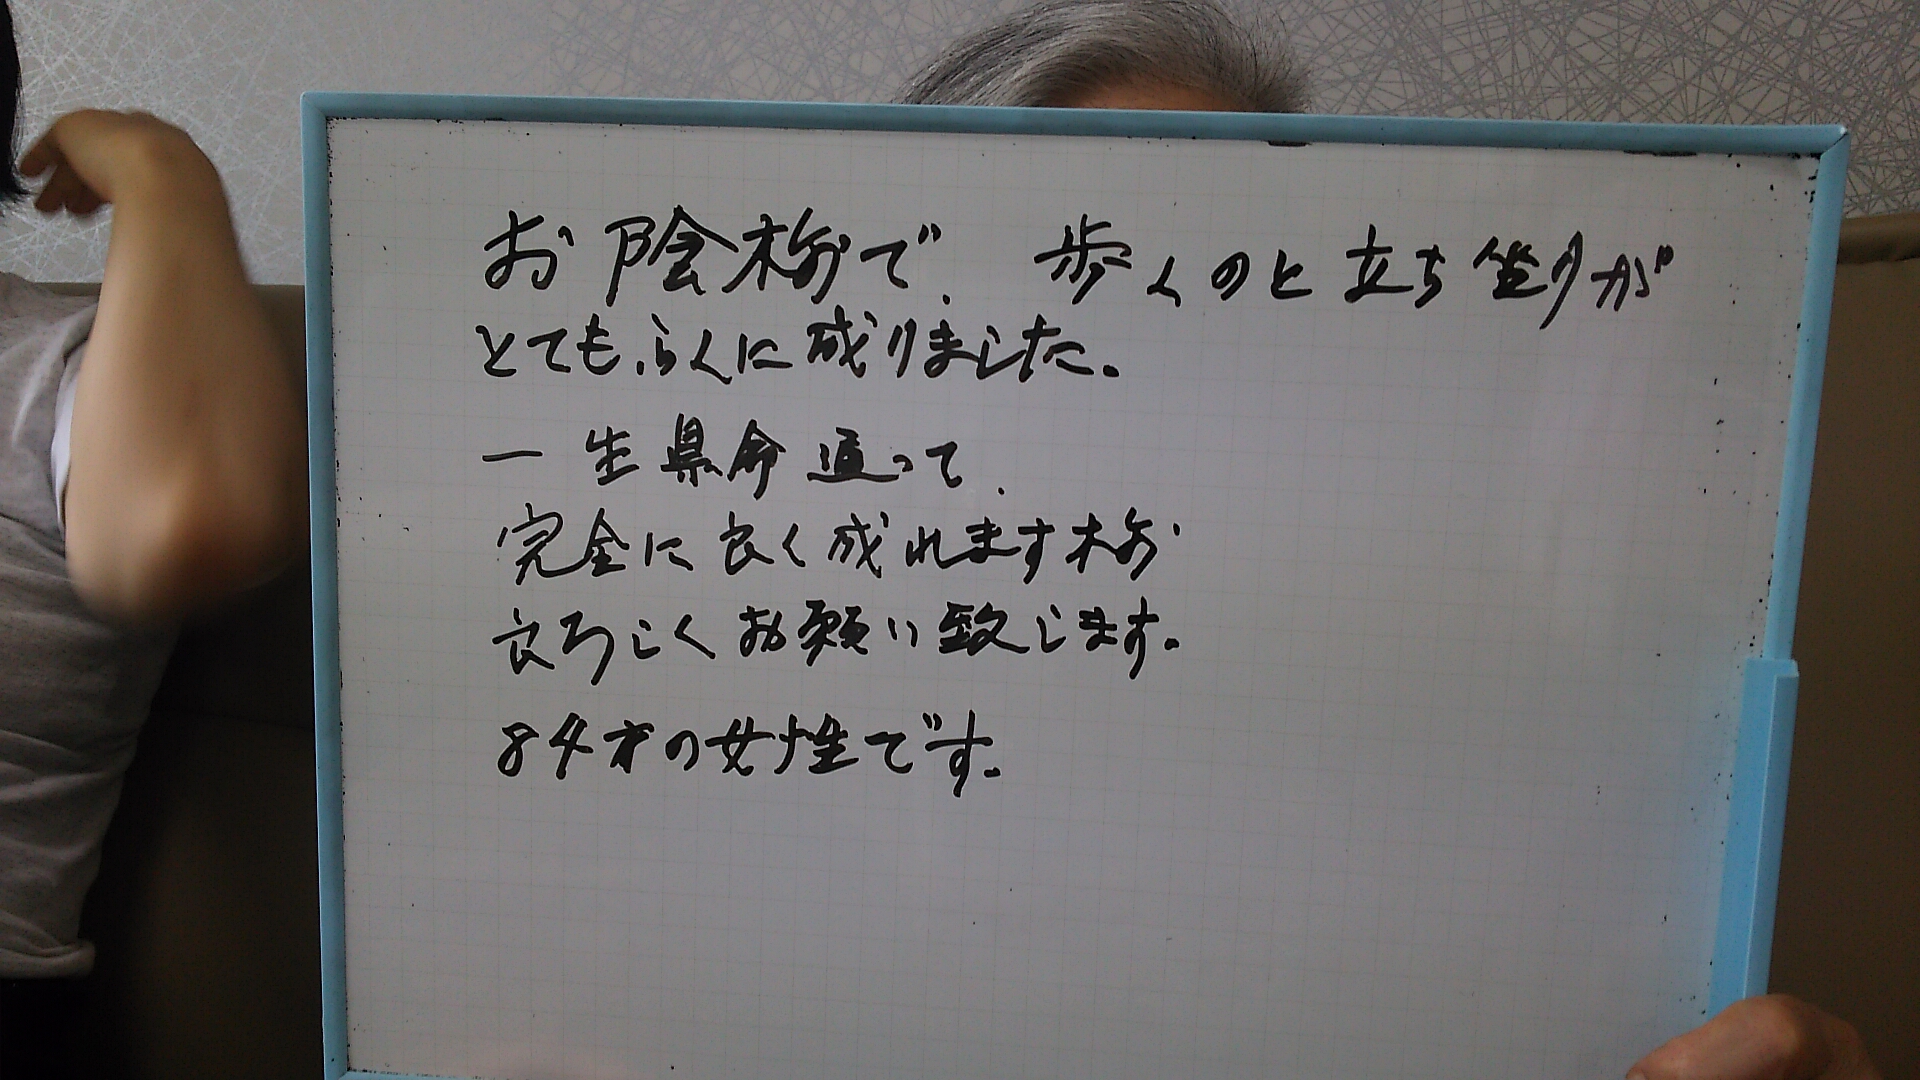 お陰様で、歩くのと立ち坐りが
とてもらくに成りました。
一生県命通って、
完全に良く成れます様
良ろしくお願い致します。
84才の女性です。